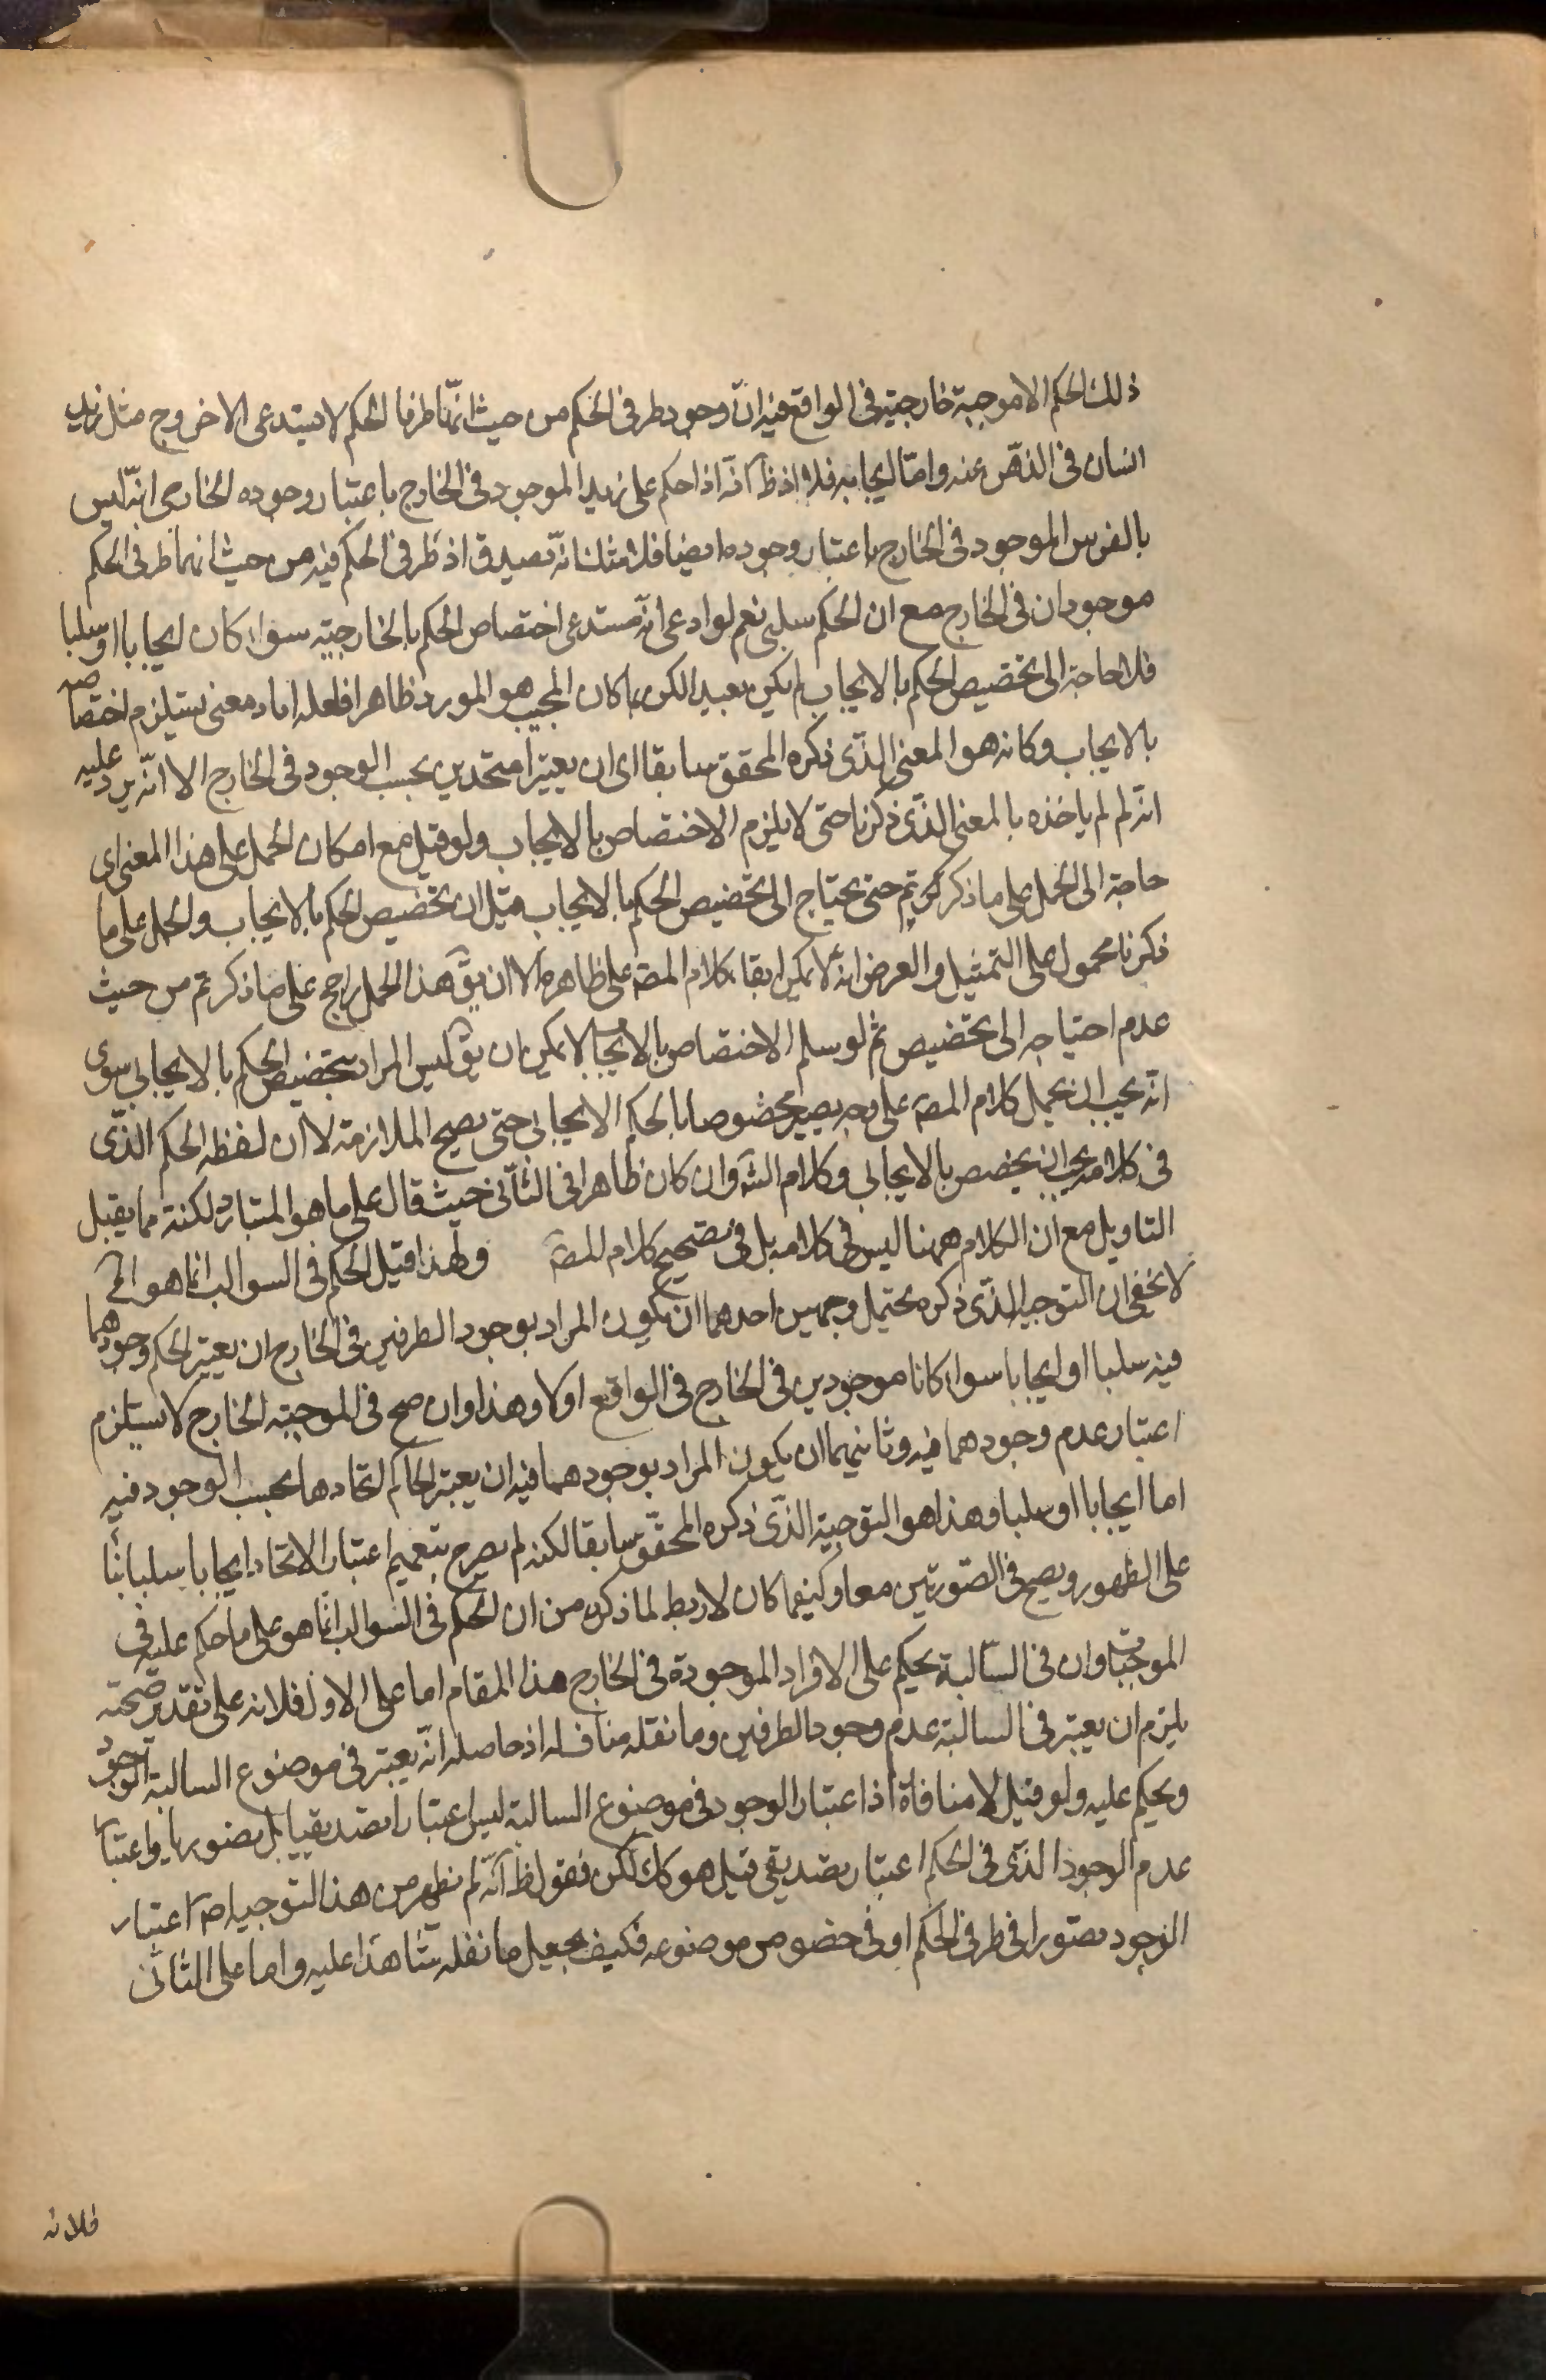 ذلك الحكم الا موجبة خارجية فى الواقع فيه ان وجود طرفى الحكم من حيث انهما طرفا الحكم لا يستدعى الا خروج مثل زيد
انسان فى الذهن عنه واما ايجابه فلا اذ ظ انه اذا حكم على زيد الموجود فى الخارج باعتبار وجوده الخارجى انه ليس
بالفرس الموجود فى الخارج باعتبار وجوده ايضا فلا شك انه يصدق اذ طرفى الحكم فيه من حيث انهما طرفى الحكم
موجودان فى الخارج مع ان الحكم سلبى نعم لو ادعى انه يستدعى اختصاص الحكم بالخارجية سواء كان ايجابا او سلبا
فلا حاجة الى تخصيص الحكم بالايجاب لم يكن بعيدا لكن لما كان المجيب هو المورد ظاهرا فلعله اراد معنى يستلزم اختصاصه
بالايجاب وكانه هو المعنى الذى ذكره المحقق سابقا اى ان يعتبرا متحدين بحسب الوجود فى الخارج الا انه يرد عليه
انه لم لم ياخذه بالمعنى الذى ذكرنا حتى لا يلزم الاختصاص بالايجاب ولو قيل مع امكان الحمل على هذا المعنى اى
حاجة الى الحمل على ما ذكرتم حتى يحتاج الى تخصيص الحكم بالايجاب قيل ان تخصيص الحكم بالايجاب والحمل على ما
ذكرنا محمول على التمثيل والغرض انه لا يمكن ابقاء كلام المصه على ظاهره الا ان يق هذا الحمل راجح على ما ذكرتم من حيث
عدم احتياجه الى تخصيص ثم لو سلم الاختصاص بالايجاب لا يمكن ان يق ليس المراد بتخصيص الحكم بالايجابى سوى
انه يجب ان يحمل كلام المصه على وجه يصير مخصوصا بالحكم الايجابى حتى يصح الملازمة لا ان لفظه الحكم الذى
فى كلامه يجب ان يخصص بالايجابى وكلام الشه وان كان ظاهرا فى الثانى حيث قال على ما هو المتبادر لكنه مما يقبل
التاويل مع ان الكلام ههنا ليس فى كلامه بل فى تصحيح كلام المصه ولهذا قيل الحكم فى السوالب انما هو الخ
لا يخفى ان التوجيه الذى ذكره يحتمل وجهين احدهما ان يكون المراد بوجود الطرفين فى الخارج ان يعتبر الحكم وجودهما
فيه سلبا او ايجابا سواء كانا موجودين فى الخارج فى الواقع اولا وهذا وان صح فى الموجبة الخارج لا يستلزم
اعتبار عدم وجودهما فيه وثانيهما ان يكون المراد بوجودهما فيه ان يعتبر الحاكم اتحادهما بحسب الوجود فيه
اما ايجابا او سلبا وهذا هو التوجيه الذى ذكره المحقق سابقا لكنه لم يصرح بتعميم اعتبار الاتحاد ايجابا سلبا بناء
على الظهور ويصح فى الصورتين معا وكيفما كان لا ربط لما ذكره من ان الحكم فى السوالب انما هو على ما حكم عليه فى
الموجبات وان فى السالبة يحكم على الافراد الموجودة فى الخارج هذا المقام اما على الاول فلانه على تقدير صحته
يلزم ان يعتبر فى السالبة عدم وجود الطرفين وما نقله مناف له اذ حاصله انه يعتبر فى موضوع السالبة الوجود
ويحكم عليه ولو قيل لا منافاة اذ اعتبار الوجود فى موضوع السالبة ليس اعتبارا تصديقيا بل تصوريا واعتبار
عدم الوجود الذى فى الحكم اعتبار تصديقى قيل هو كك لكن نقول ظ انه لم يظهر من هذا التوجيه اصه اعتبار
الوجود تصورا فى طرفى الحكم او فى خصوص موضوعه فكيف يجعل ما نقله شاهدا عليه واما على الثانى
فلانه